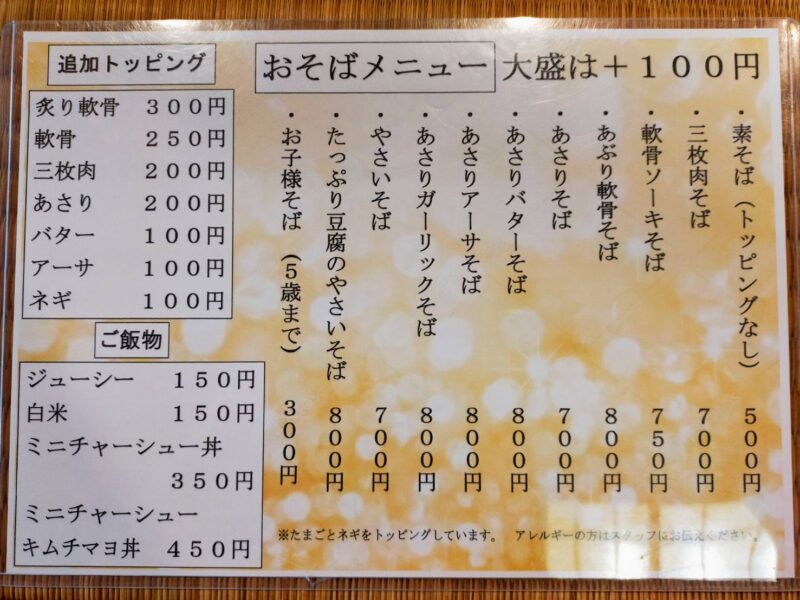 おそばメニュー 大盛は＋１００円
・素そば（トッピングなし） ５００円
・三枚肉そば ７００円
・軟骨ソーキそば ７５０円
・あぶり軟骨そば ８００円
・あさりそば ７００円
・あさりバターそば ８００円
・あさりアーサそば ８００円
・あさりガーリックそば ８００円
・やさいそば ７００円
・たっぷり豆腐のやさいそば ８００円
・お子様そば （５歳まで） ３００円
※たまごとネギをトッピングしています。 アレルギーの方はスタッフにお伝えください。
追加トッピング
炙り軟骨 ３００円
軟骨 ２５０円
三枚肉 ２００円
あさり ２００円
バター １００円
アーサ １００円
ネギ １００円
ご飯物
ジューシー １５０円
白米 １５０円
ミニチャーシュー丼
３５０円
ミニチャーシュー
キムチマヨ丼 ４５０円